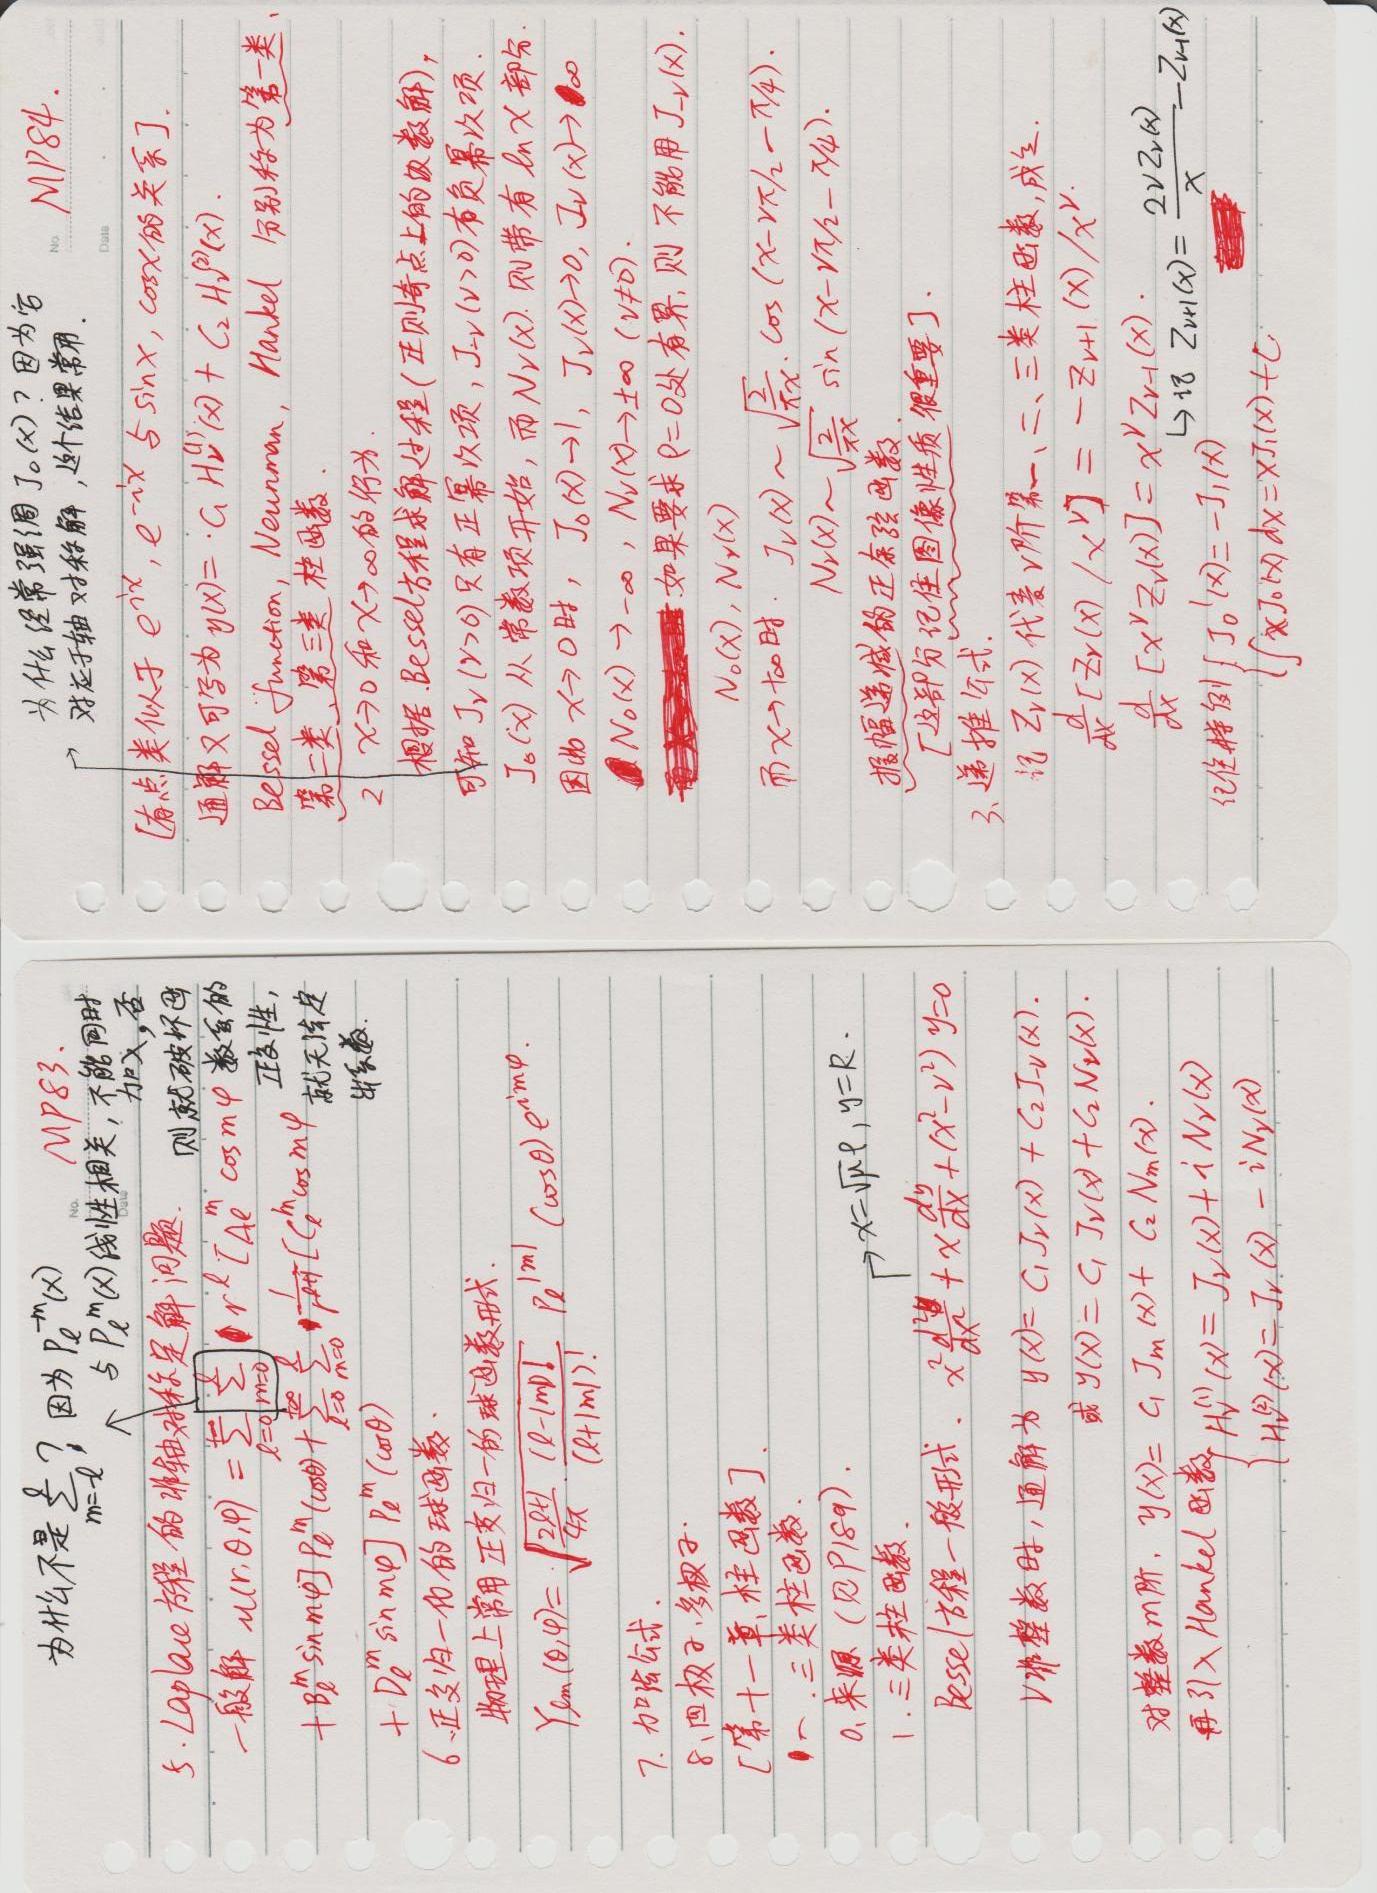 为什么不是 \sum_{m=-l}^{l}? 因为 P_l^{-m}(x)
与 P_l^m(x) 线性相关, 不能同时
加入, 否
则就破坏函
数系的
正交性,
就无法定
出系数.
MP83.
5. Laplace 方程的非轴对称定解问题.
一般解 u(r,θ,φ) = \sum_{l=0}^{+∞} \sum_{m=0}^{l} r^l [A_l^m cos mφ
+ B_l^m sin mφ] P_l^m (cosθ) + \sum_{l=0}^{+∞} \sum_{m=0}^{l} \frac{1}{r^{l+1}} [C_l^m cos mφ
+ D_l^m sin mφ] P_l^m (cosθ)
6、正交归一化的球函数.
物理上常用正交归一的球函数形式.
Y_{lm}(θ,φ) = \sqrt{\frac{2l+1}{4π} · \frac{(l-|m|)!}{(l+|m|)!}} P_l^{|m|} (cosθ) e^{imφ}.
7. 加法公式.
8、四极子、多极子.
[第十一章、柱函数].
一. 三类柱函数.
0、来源 (见P189).
1. 三类柱函数.
→ x=\sqrt{μ}ρ, y=R.
Bessel方程一般形式. x^2 \frac{d^2y}{dx^2} + x \frac{dy}{dx} + (x^2-ν^2) y=0
ν非整数时, 通解为 y(x) = C_1 J_ν(x) + C_2 J_{-ν}(x).
或 y(x) = C_1 J_ν(x) + C_2 N_ν(x).
对整数m阶, y(x) = C_1 J_m(x) + C_2 N_m(x).
再引入 Hankel 函数 { H_ν^{(1)}(x) = J_ν(x) + i N_ν(x)
H_ν^{(2)}(x) = J_ν(x) - i N_ν(x)
为什么经常强调 J_0(x)? 因为它
对应于轴对称解, 这个结果常用.
No.
MP84.
Date
[有点类似于 e^{ix}, e^{-ix} 与 sinx, cosx 的关系].
通解又可写为 y(x) = C_1 H_ν^{(1)}(x) + C_2 H_ν^{(2)}(x).
Bessel function, Neunman, Hankel 分别称为第一类、
第二类、第三类柱函数.
2 x→0 和 x→∞ 的行为.
根据 Bessel方程求解过程 (正则奇点上的级数解),
可知 J_ν(ν>0) 只有正幂次项, J_{-ν}(ν>0) 有负幂次项.
J_0(x) 从常数项开始, 而 N_ν(x) 则带有 ln x 部分.
因此 x→0时, J_0(x)→1, J_ν(x)→0, J_{-ν}(x)→∞
N_0(x)→-∞, N_ν(x)→±∞ (ν≠0).
如果要求 ρ=0处有界, 则不能用 J_{-ν}(x).
N_0(x), N_ν(x)
而 x→+∞时. J_ν(x) ~ \sqrt{\frac{2}{πx}} cos (x-νπ/2-π/4).
N_ν(x) ~ \sqrt{\frac{2}{πx}} sin (x-νπ/2-π/4).
振幅递减的正余弦函数.
[这部分记住图像性质很重要].
3、递推公式.
记 Z_ν(x) 代表 ν阶第一、二、三类柱函数, 成立.
\frac{d}{dx} [Z_ν(x) / x^ν] = -Z_{ν+1}(x) / x^ν.
\frac{d}{dx} [x^ν Z_ν(x)] = x^ν Z_{ν-1}(x).
↳ 记 Z_{ν+1}(x) = \frac{2νZ_ν(x)}{x} - Z_{ν-1}(x)
记住特例 { J_0'(x) = -J_1(x)
∫ x J_0(x) dx = xJ_1(x) + C